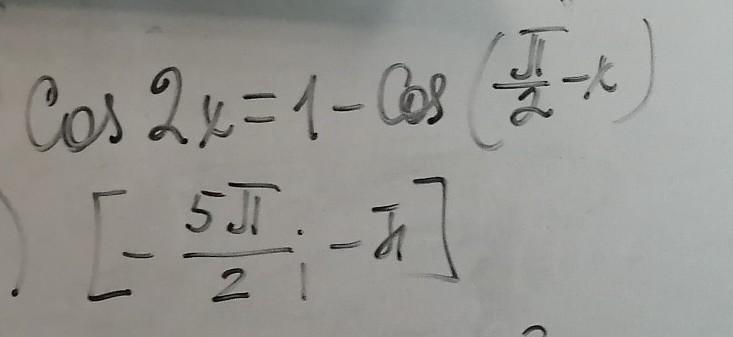 cos 2x = 1 - cos (π/2 - x)
) [-5π/2; -π]